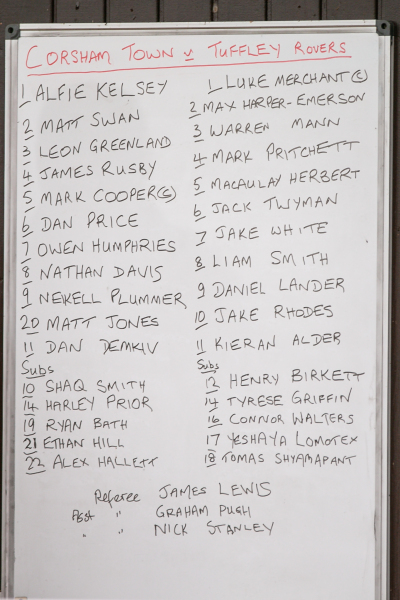 CORSHAM TOWN v TUFFLEY ROVERS
1 ALFIE KELSEY
2 MATT SWAN
3 LEON GREENLAND
4 JAMES RUSBY
5 MARK COOPER (C)
6 DAN PRICE
7 OWEN HUMPHRIES
8 NATHAN DAVIS
9 NEIKELL PLUMMER
20 MATT JONES
11 DAN DEMKIV
Subs
10 SHAQ SMITH
14 HARLEY PRIOR
19 RYAN BATH
21 ETHAN HILL
22 ALEX HALLETT
1 LUKE MERCHANT (C)
2 MAX HARPER-EMERSON
3 WARREN MANN
4 MARK PRITCHETT
5 MACAULAY HERBERT
6 JACK TWYMAN
7 JAKE WHITE
8 LIAM SMITH
9 DANIEL LANDER
10 JAKE RHODES
11 KIERAN ALDER
Subs
12 HENRY BIRKETT
14 TYRESE GRIFFIN
16 CONNOR WALTERS
17 YESHAYA LOMOTEX
18 TOMAS SHYAMAPANT
Referee JAMES LEWIS
Asst " GRAHAM PUGH
" " NICK STANLEY